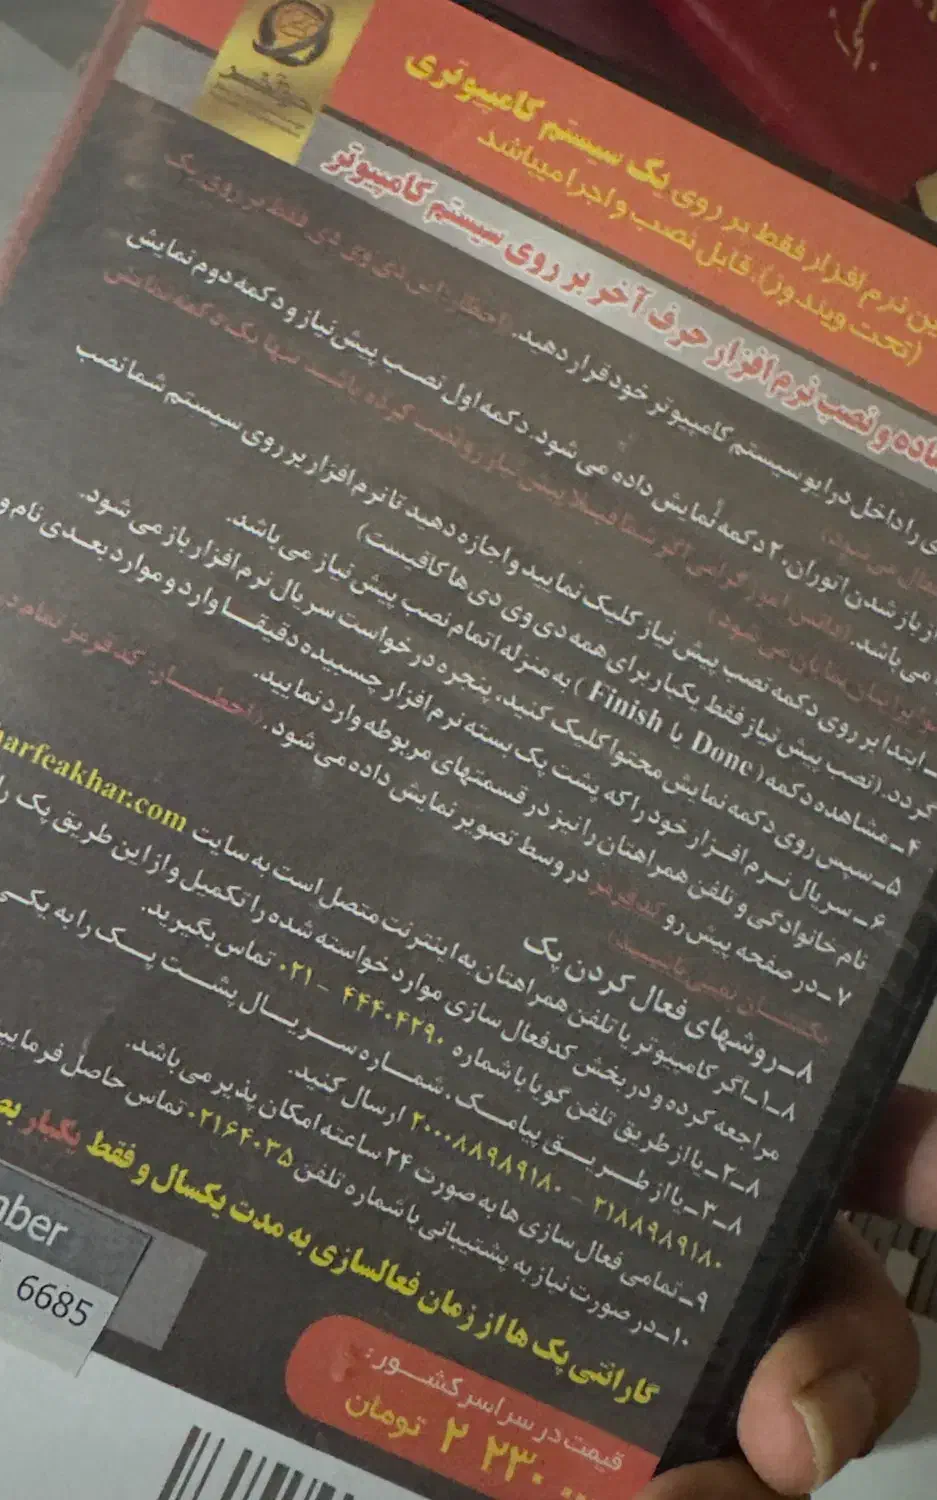 حرف آخر
ین نرم افزار فقط بر روی یک سیستم کامپیوتری
(تحت ویندوز)، قابل نصب و اجرا میباشد
نرم افزار حرف آخر بر روی سیستم کامپیوتر
ی را داخل درایو سیستم کامپیوتر خود قرار دهید. (اخطار: این دی وی دی فقط بر روی یک
فعال می شود)
از باز شدن اتوران، ۲ دکمه نمایش داده می شود. دکمه اول نصب پیش نیاز و دکمه دوم نمایش
می باشد.
ابتدا بر روی دکمه نصب پیش نیاز کلیک نمایید و اجازه دهید تا نرم افزار بر روی سیستم شما نصب
گردد. (نصب پیش نیاز فقط یکبار برای همه دی وی دی ها کافیست)
۴_ مشاهده دکمه (Done یا Finish) به منزله اتمام نصب پیش نیاز می باشد.
۵_ سپس روی دکمه نمایش محتوا کلیک کنید، پنجره درخواست سریال نرم افزار باز می شود.
۶_ سریال نرم افزار خود را که پشت پک بسته نرم افزار چسبیده دقیقا وارد و موارد بعدی نام و
نام خانوادگی و تلفن همراهتان را نیز در قسمتهای مربوطه وارد نمایید.
۷_ در صفحه پیش رو کد قرمز در وسط تصویر نمایش داده می شود. (اخطار: کد قرمز تمام
یکسان نمی باشد)
۸_ روشهای فعال کردن پک
۸_۱_ اگر کامپیوتر یا تلفن همراهتان به اینترنت متصل است به سایت harfeakhar.com
مراجعه کرده و در بخش کدفعال سازی موارد خواسته شده را تکمیل و از این طریق پک را
۸_۲_ یا از طریق تلفن گویا با شماره ۴۴۴۰۴۲۹۰ - ۰۲۱ تماس بگیرید.
۸_۳_ یا از طریق پیامک، شماره سریال پشت پک را به یکی
۲۱۸۸۹۸۹۱۸۰ - ۲۰۰۰۸۸۹۸۹۱۸۰ ارسال کنید.
۹_ تمامی فعال سازی ها به صورت ۲۴ ساعته امکان پذیر می باشد.
۱۰_ در صورت نیاز به پشتیبانی با شماره تلفن ۰۲۱۶۴۰۳۵ تماس حاصل فرمایید
گارانتی پک ها از زمان فعالسازی به مدت یکسال و فقط یکبار
mber
6685
قیمت در سراسر کشور:
۲۲۳۰۰۰ تومان